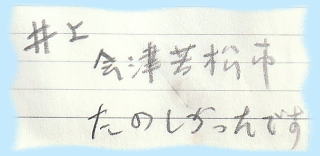 井上
会津若松市
たのしかったです